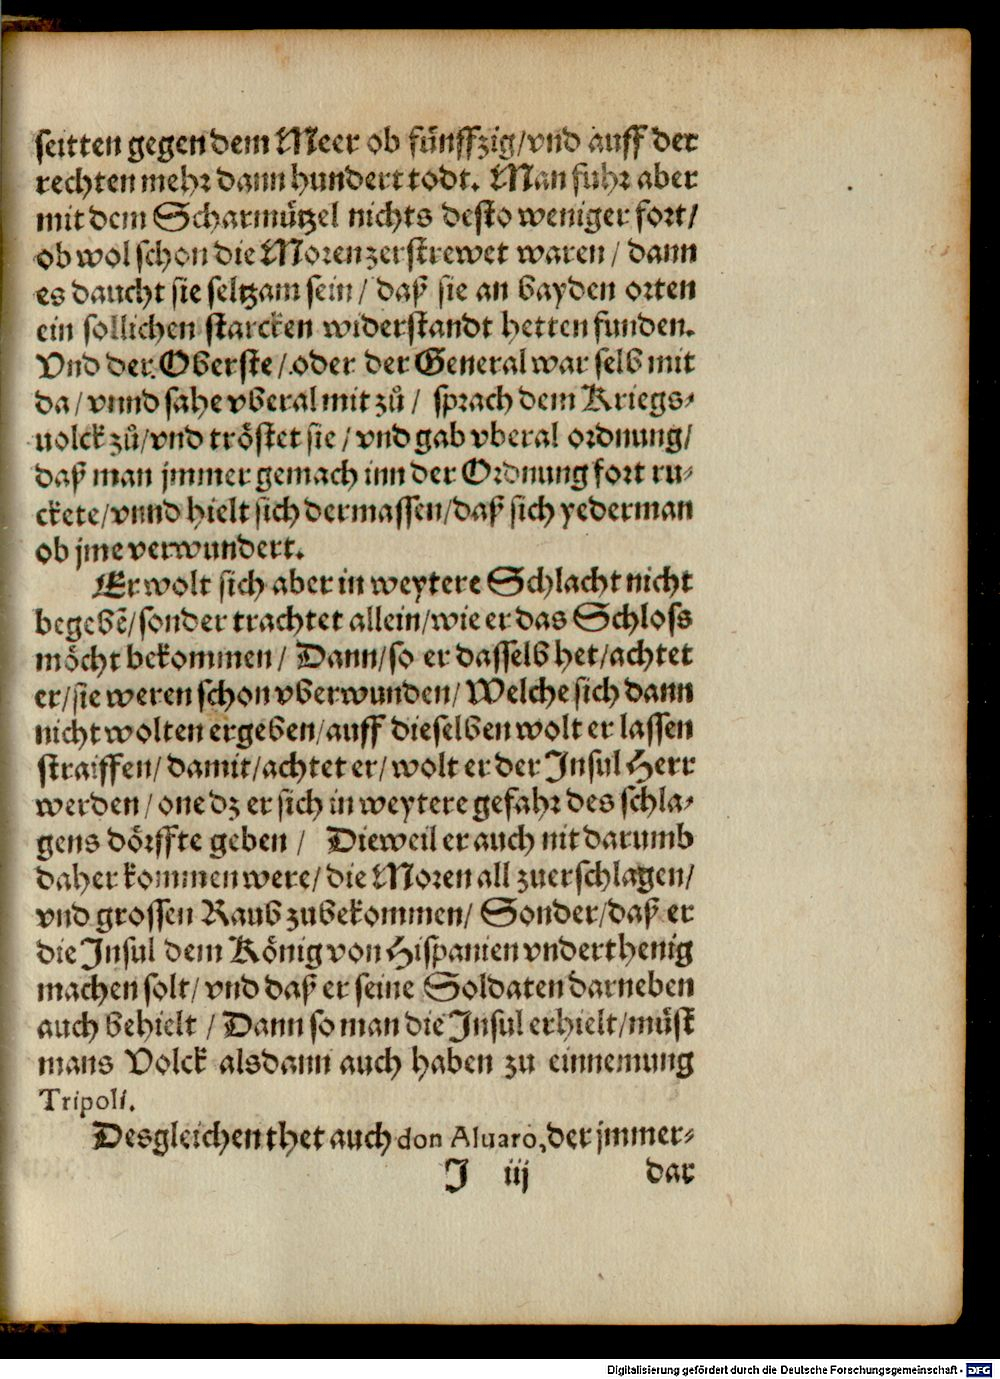 seitten gegen dem Meer ob fünffzig/vnd auff der
rechten mehr dann hundert todt. Man fuhr aber
mit dem Scharmützel nichts desto weniger fort/
ob wol schon die Moren zerstrewet waren / dann
es daucht sie seltzam sein / daß sie an bayden orten
ein sollichen starcken widerstandt hetten funden.
Vnd der Oberste / oder der General war selb mit
da / vnnd sahe vberal mit zů / sprach dem Kriegs⸗
uolck zů/vnd tröstet sie / vnd gab vberal ordnung/
daß man jmmer gemach inn der Ordnung fort ru⸗
ckete/vnnd hielt sich dermassen/daß sich yederman
ob jme verwundert.
Er wolt sich aber in weytere Schlacht nicht
begebẽ/sonder trachtet allein/wie er das Schloss
möcht bekommen/ Dann/so er dasselb het/achtet
er/sie weren schon vberwunden/Welche sich dann
nicht wolten ergeben/auff dieselben wolt er lassen
straiffen/ damit/achtet er/wolt er der Insul Herr
werden / one dz er sich in weytere gefahr des schla⸗
gens dörffte geben / Dieweil er auch nit darumb
daher kommen were/die Moren all zuerschlagen/
vnd grossen Raub zubekommen/ Sonder/daß er
die Insul dem König von Hispanien vnderthenig
machen solt/ vnd daß er seine Soldaten darneben
auch behielt / Dann so man die Insul erhielt/müst
mans Volck alsdann auch haben zu einnemung
Tripoli.
Desgleichen thet auch don Aluaro, der jmmer⸗
J iij dar
Digitalisierung gefördert durch die Deutsche Forschungsgemeinschaft - DFG